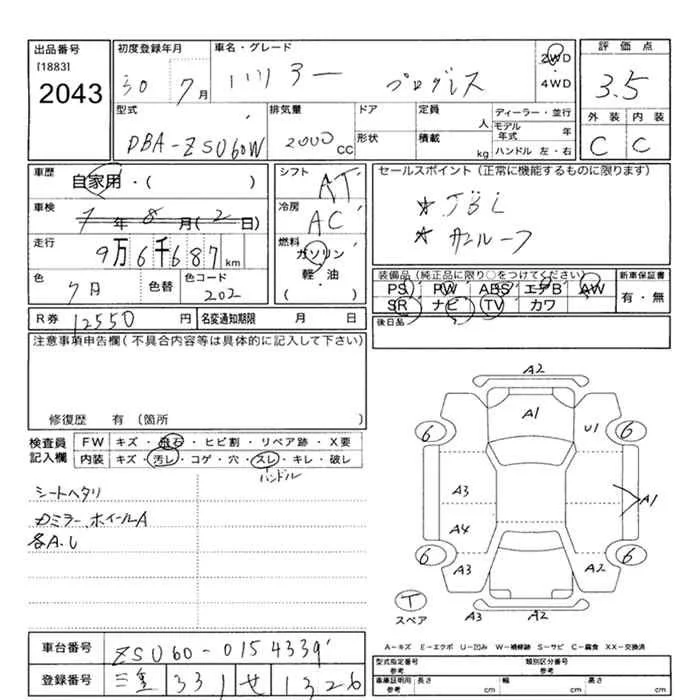 出品番号 初度登録年月 車名・グレード 2WD 評価点
[1883] 2043 30 7月 ハリアー プログレス 4WD 3.5
型式 排気量 ドア 定員 ディーラー・並行 外装 内装
DBA-ZSU60W 2000CC 形状 人 積載 kg モデル年式 年 ハンドル 左・右 C C
車歴 自家用・( ) シフト AT セールスポイント(正常に機能するものに限ります)
車検 7年8月(2日) 冷房 AC ☆JBL
走行 9万6千687km 燃料 ガソリン ☆サンルーフ
軽・油 ( ) 装備品(純正品に限り○をつけてください) 新車保証書
色 クロ 色替 色コード 202 PS PW ABS エアB AW 有・無
SR ナビ TV カワ
R券 12550円 名変通知期限 月 日 後日品
注意事項申告欄(不具合内容等は具体的に記入して下さい)
修復歴 有(箇所 )
検査員記入欄 FW キズ・飛石・ヒビ割・リペア跡・X要
内装 キズ・汚レ・コゲ・穴・スレ・キレ・破レ
ハンドル
シートヘタリ
カミラー、ホイールA
各A.U
A2
A1 U1
6 6
A3 A1
A4
6 6
A3 A2
T スペア A3 A2
A-キズ E-エクボ U-凹み W-補修跡 S-サビ C-腐食 XX-交換済
車台番号 ZSU60-0154339
登録番号 三重 331 せ 1326
型式指定番号 参考 類別区分番号
車庫証明用 参考 長さ cm 幅 cm 高さ cm